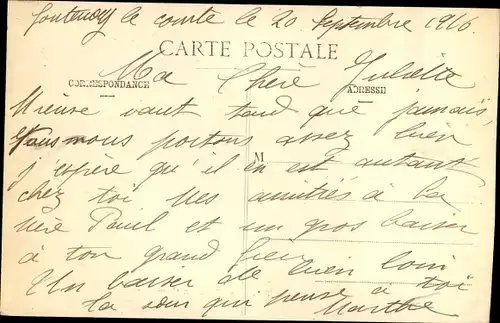 le comte le 20 Septembre 1916
CARTE POSTALE
Ma Chère Juliette
CORRESPONDANCE
ADRESSE
Mieuse vaut tard que jamais,
nous portons assez bien
j'espère qu'il en est autant
M
chez toi mes amitiés à la
mère Paul et un gros baiser
à ton grand
Un baiser de bien loin
la sœur qui pense à toi
Marthe